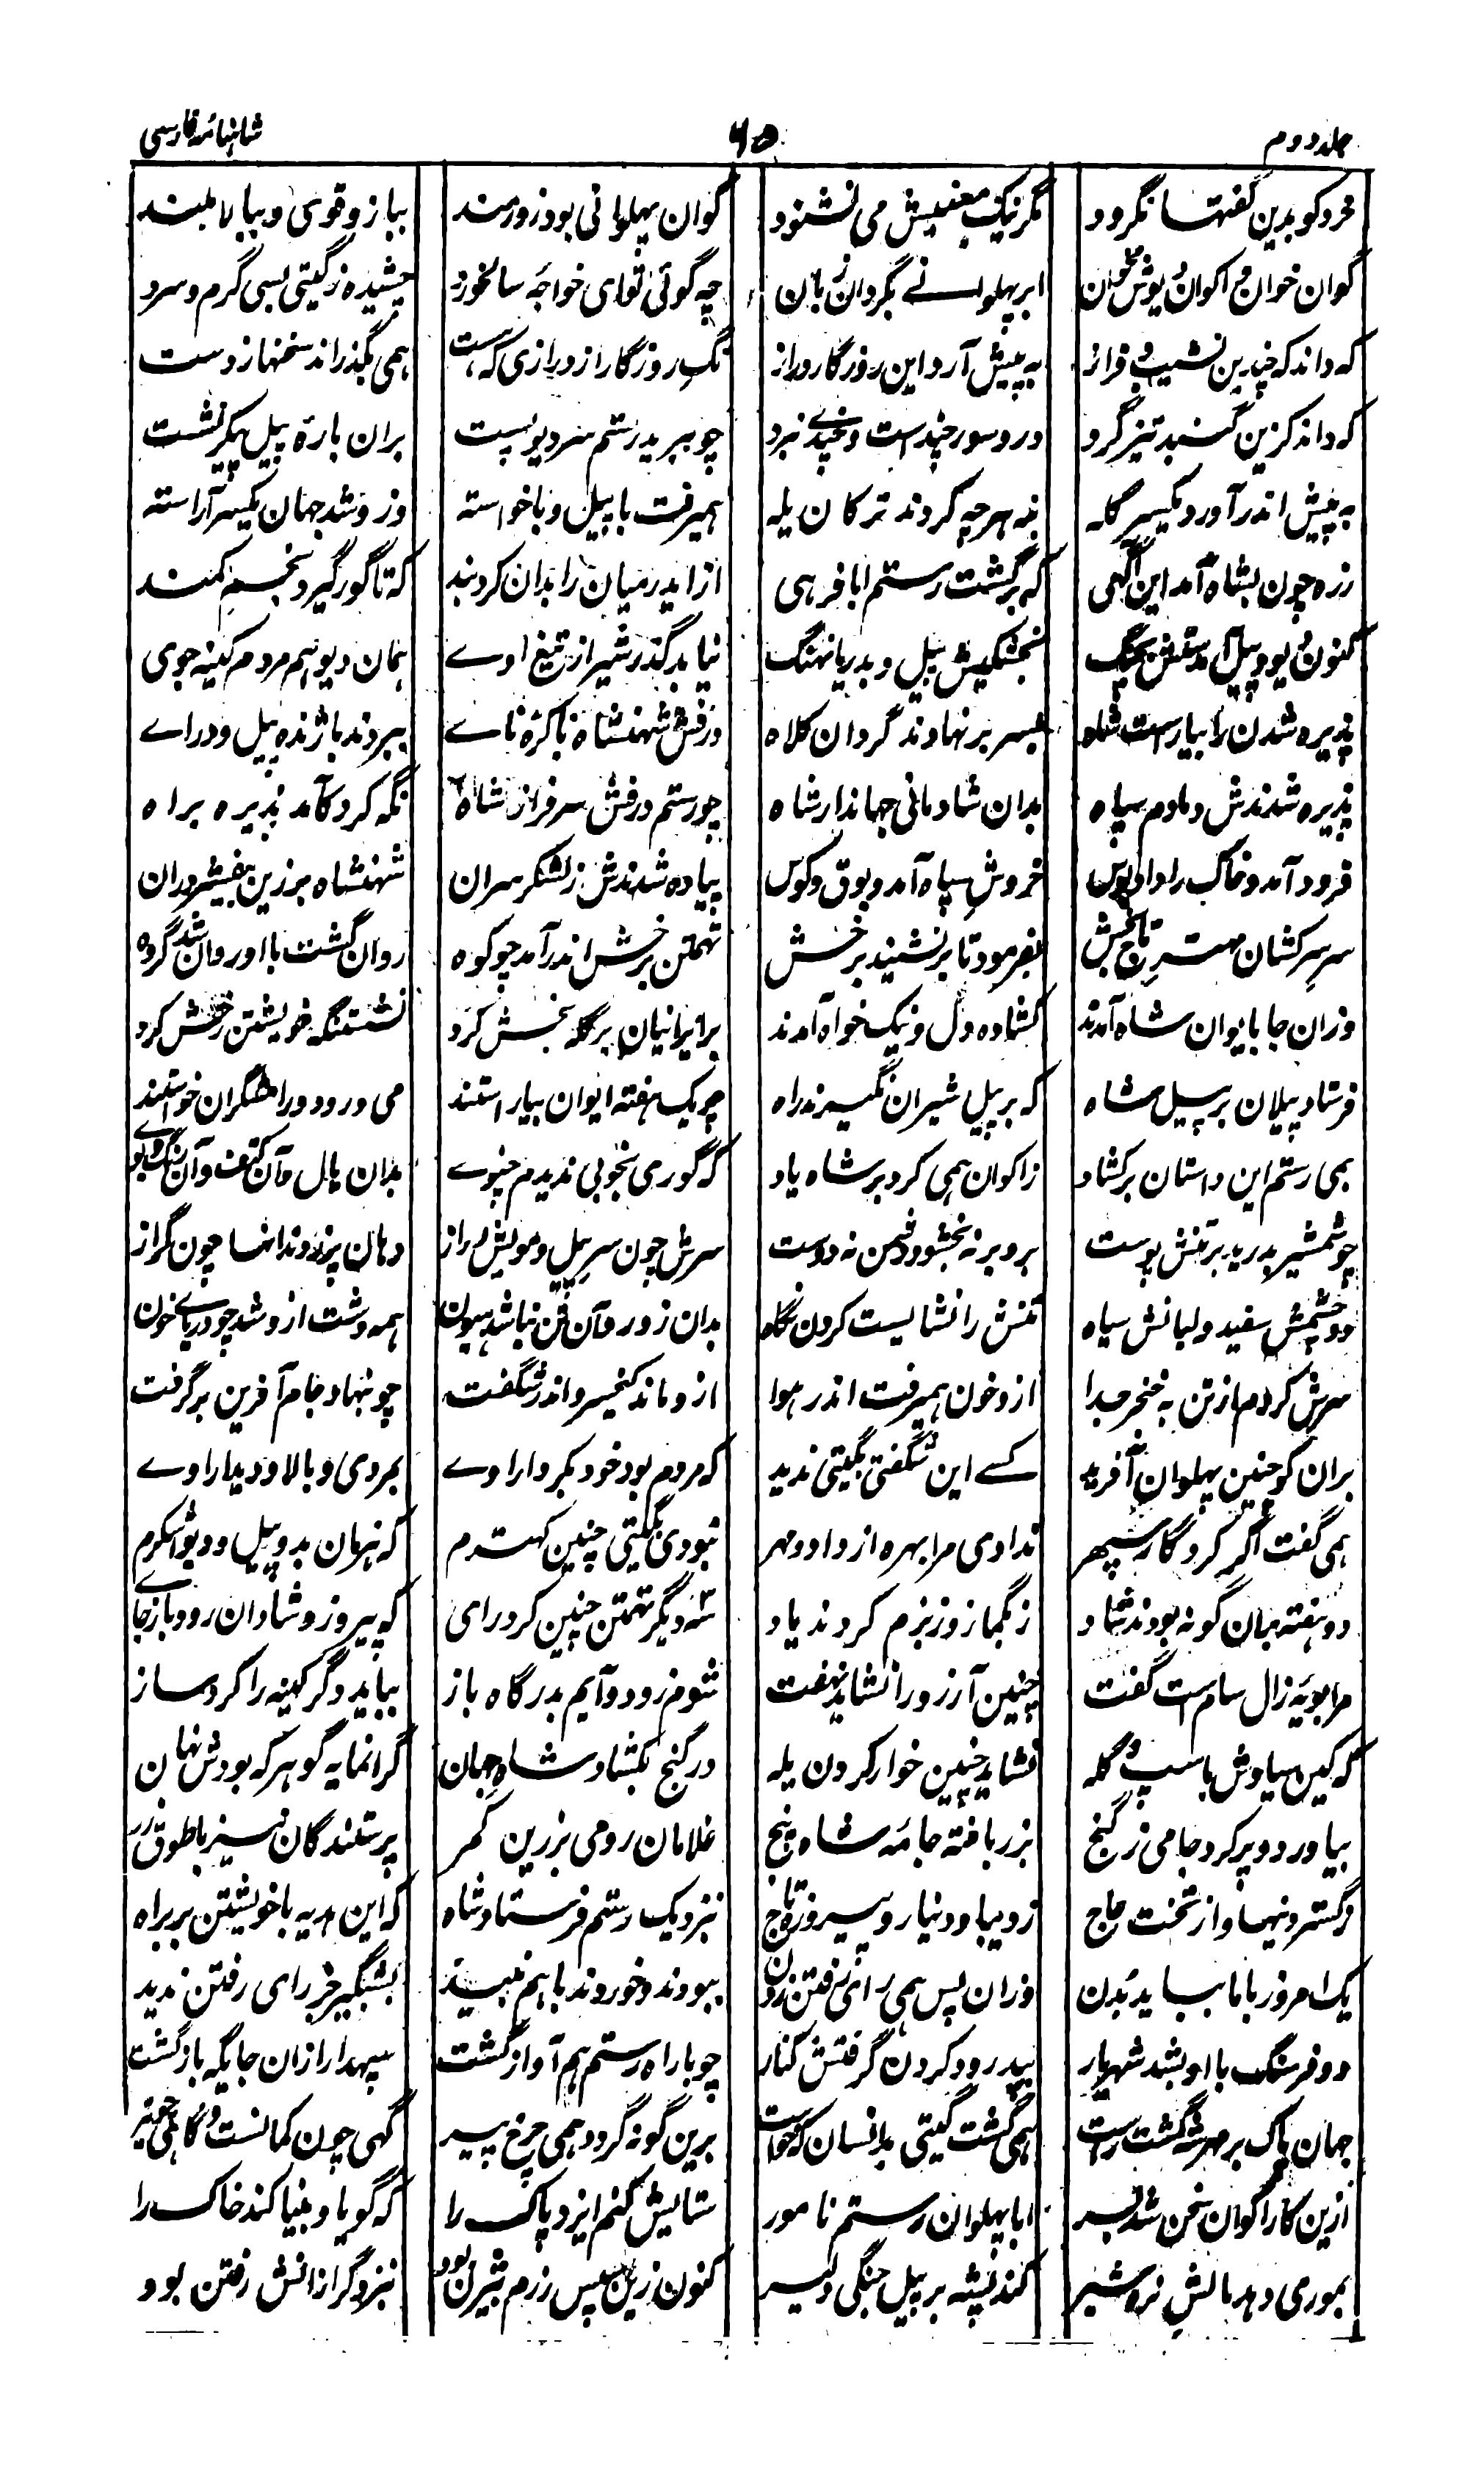 جلد دوم ۶۵ شاہنامہ فارسی
خرد کو بدین گفتها نگرود مگر نیک معنیش می نشنود گوان پهلوانی بود زورمند ببازو قوی و ببالا بلند
گوان خوان و اکوان دیوش مخوان ابر پهلوانے بگردان زبان چه گوئی تو ای خواجهٔ سالخورد چشیده ز گیتی بسی گرم و سرد
که داند که چندین نشیب و فراز به پیش آرد این روزگار دراز تگ روزگار از درازی که هست همی بگذراند سخنها ز دست
که داند کزین گنبد تیز گرد درو سور چندست و چندے نبرد چو ببرید رستم سر دیو پست بران بارهٔ پیل پیکر نشست
به پیش اندر آورد یکسر گله بنه هرچه کردند ترکان یله همیرفت با پیل و با خواسته وزو شد جهان یکسر آراسته
ز ره چون بشاه آمد این آگهی که برگشت رستم ابا فرهی از ایدر میان را بدان کرد بند که تا گور گیرد بخم کمند
کنون دیو و پیل آمدستش بچنگ بخشکیش پیل و بدریا نهنگ نیابد گذر شیر از تیغ اوے همان دیو هم مردم کینه جوی
پذیره شدن را بیاراست شاه بسر بر نهادند گردان کلاه درفش شهنشاه با کره نائے ببردند با ژنده پیل و درائے
پذیره شدندش دمادم سپاه بدان شادمانی جهاندار شاه چو رستم درفش سرفراز شاه نگه کرد کامد پذیره براه
فرود آمد و خاک را داد بوس خروش سپاه آمد و بوق و کوس پیاده شدندش ز لشکر سران شهنشاه بر زین بیفشرد ران
سر سرکشان مهتر تاج بخش بفرمود تا برنشیند برخش تهمتن برخش اندر آمد چو کوه روان گشت با او روان شد گروه
وزان جا بایوان شاه آمدند گشاده دل و نیک خواه آمدند بر ایرانیان بر گله بخش کرد نشستنگه خویشتن رخش کرد
فرستاد پیلان بر پیل شاه که بر پیل شیران نگیرند راه چو یک هفته ایوان بیاراستند می و رود و رامشگران خواستند
بمی رستم این داستان برکشاد ز اکوان همی کرد بر شاه یاد که گوری بخوبی ندیدم چنوے بدان یال و آن کتف و آن رنگ و بوے
چو شمشیر بدرید بر تنش پوست برو بر نه بخشود دشمن نه دوست سرش چون سر پیل و مویش دراز دهان پر ز دندانها چون گراز
دو چشمش سفید و لبانش سیاه تنش را نشایست کردن نگاه بدان زور و آن تن نباشد هیون همه دشت ازو شد چو دریائے خون
سرش کردم از تن به خنجر جدا ازو خون همیرفت اندر هوا ازو ماند کیخسرو اندر شگفت چو بنهاد جام آفرین برگرفت
بران کو چنین پهلوان آفرید کسے این شگفتی بگیتی ندید که مردم بود خود بکردار اوے بمردی و بالا و دیدار اوے
همی گفت اگر کردگار سپهر ندادی مرا بهره از داد و مهر نبودی بگیتی چنین کهترم که هزمان بدو پیل و دیو اشکرم
دو هفته بران گونه بودند شاد ز بگماز وز بزم کردند یاد سه دیگر تهمتن چنین کرد رای که پیروز و شادان رود باز جائے
مرا بویهٔ زال سام ست گفت چنین آرزو را نشاید نهفت شوم زود و آیم بدرگاه باز بباید دگر کینه را کرد ساز
که کین سیاوش باسپ و گله نشاید چنین خوار کردن یله در گنج بکشاد شاه جهان گرانمایه گوهر که بودش نهان
بیاورد و پر کرد جامی ز گنج بزر بافته جامهٔ شاه پنج غلامان رومی بزرین کمر پرستندگان نیز با طوق زر
ز گستردنیها و از تخت عاج ز دیبا و دینار و پیروزه تاج بنزدیک رستم فرستاد شاه که این هدیه با خویشتن بر براه
یک امروز با ما بباید بدن وزان پس همی رائے رفتن زدن ببودند و خوردند با هم نبید بشبگیر جز رای رفتن ندید
دو فرسنگ با او بشد شهریار بپدرود کردن گرفتش کنار چو با راه رستم هم آواز گشت سپهدار ازان جایگه بازگشت
جهان پاک بر مهر شه گشت راست همی گشت گیتی بدانسان که خواست برین گونه گردد همی چرخ پیر گهی چون کمانست و گاهی چو تیر
ازین کار اکوان سخن شد بسر ابا پهلوان رستم نامور ستایش کنم ایزد پاک را که گویا و بینا کند خاک را
بموری دهد مالش نره شیر کند پشه بر پیل جنگی دلیر کنون زین سپس رزم بیژن بود بنزد گرازانش رفتن بود